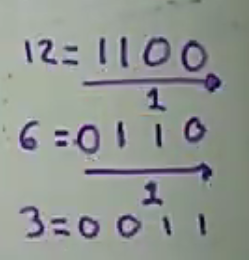 12=1100
1
6=0110
1
3=0011